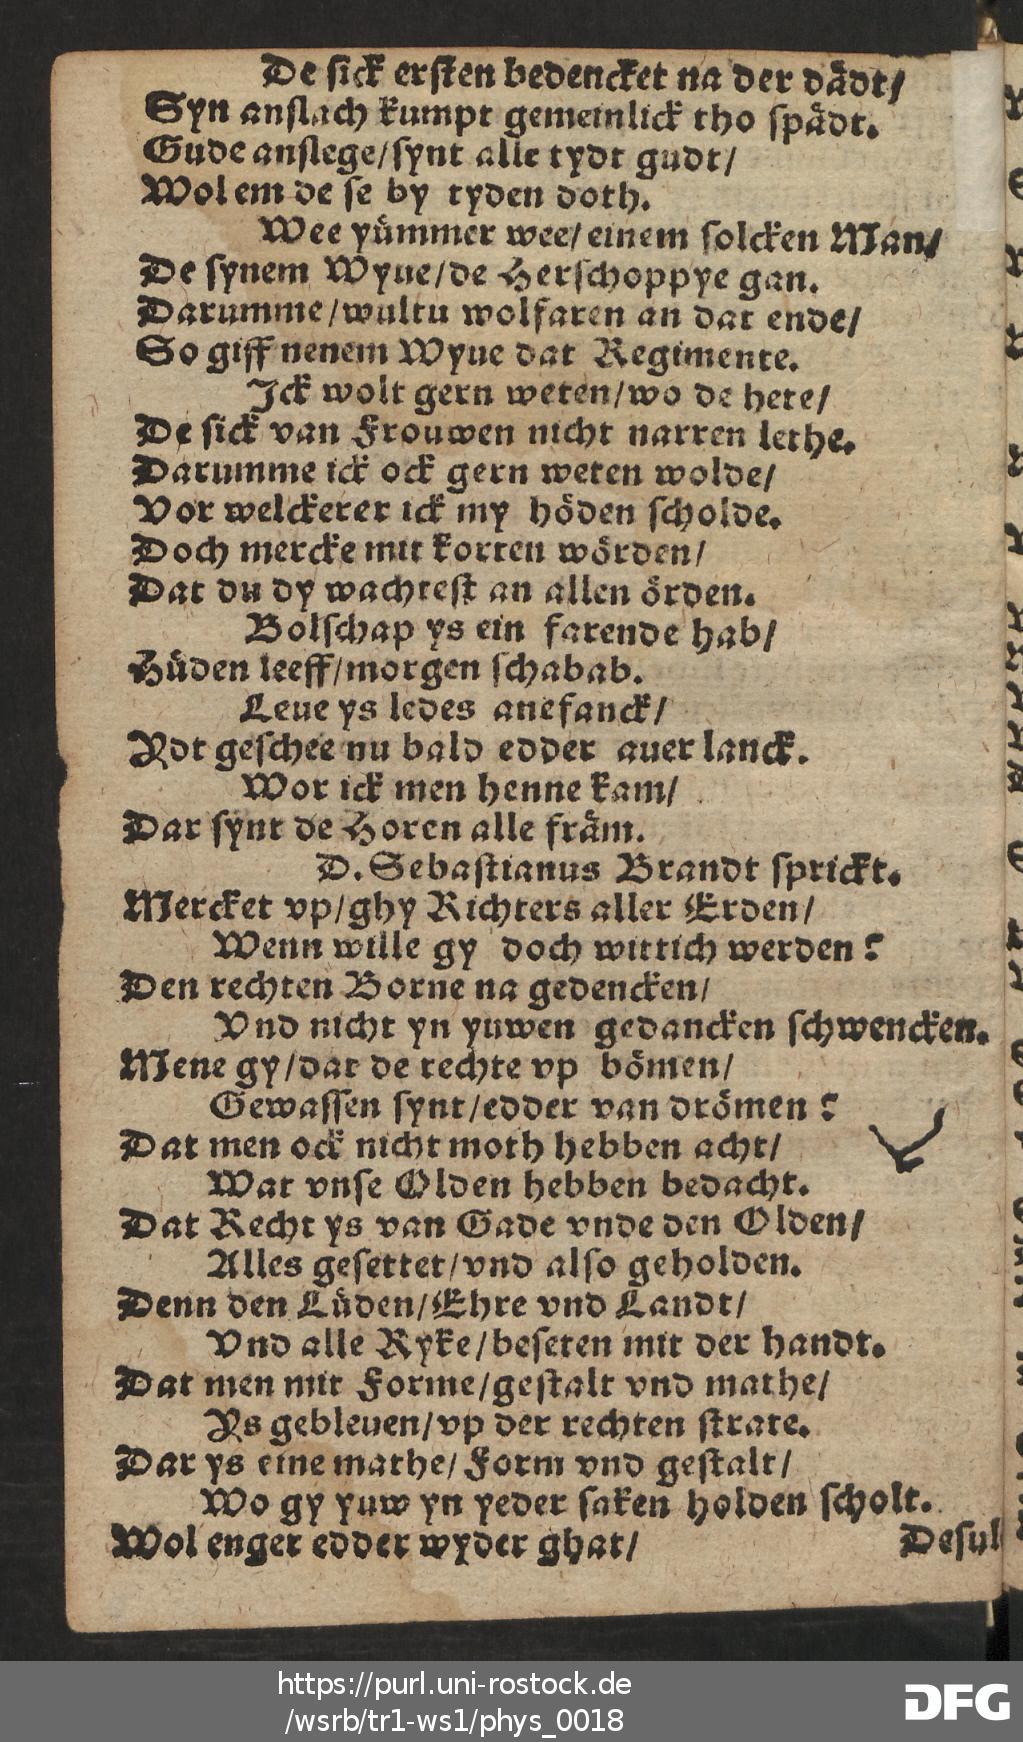 De sick ersten bedencket na der dådt/
Syn anslach kumpt gemeinlick tho spådt.
Gude anslege/synt alle tydt gudt/
Wol em de se by tyden doth.
Wee yümmer wee/einem solcken Man/
De synem Wyue/de Herschoppye gan.
Darumme/wultu wolfaren an dat ende/
So giff nenem Wyue dat Regimente.
Ick wolt gern weten/wo de hete/
De sick van Frouwen nicht narren lethe.
Darumme ick ock gern weten wolde/
Vor welckerer ick my höden scholde.
Doch mercke mit korten wörden/
Dat du dy wachtest an allen örden.
Bolschap ys ein farende hab/
Hüden leeff/morgen schabab.
Leue ys ledes anefanck/
Ydt geschee nu bald edder auer lanck.
Wor ick men henne kam/
Dar synt de Horen alle fråm.
D. Sebastianus Brandt sprickt.
Mercket vp/ghy Richters aller Erden/
Wenn wille gy doch wittich werden?
Den rechten Borne na gedencken/
Vnd nicht yn yuwen gedancken schwencken.
Mene gy/dat de rechte vp bömen/
Gewassen synt/edder van drömen?
Dat men ock nicht moth hebben acht/
Wat vnse Olden hebben bedacht.
Dat Recht ys van Gade vnde den Olden/
Alles gesettet/vnd also geholden.
Denn den Lüden/Ehre vnd Landt/
Vnd alle Ryke/beseten mit der handt.
Dat men mit Forme/gestalt vnd mathe/
Ys gebleuen/vp der rechten strate.
Dar ys eine mathe/Form vnd gestalt/
Wo gy yuw yn yeder saken holden scholt.
Wol enger edder wyder ghat/
Desul
https://purl.uni-rostock.de
/wsrb/tr1-ws1/phys_0018
DFG